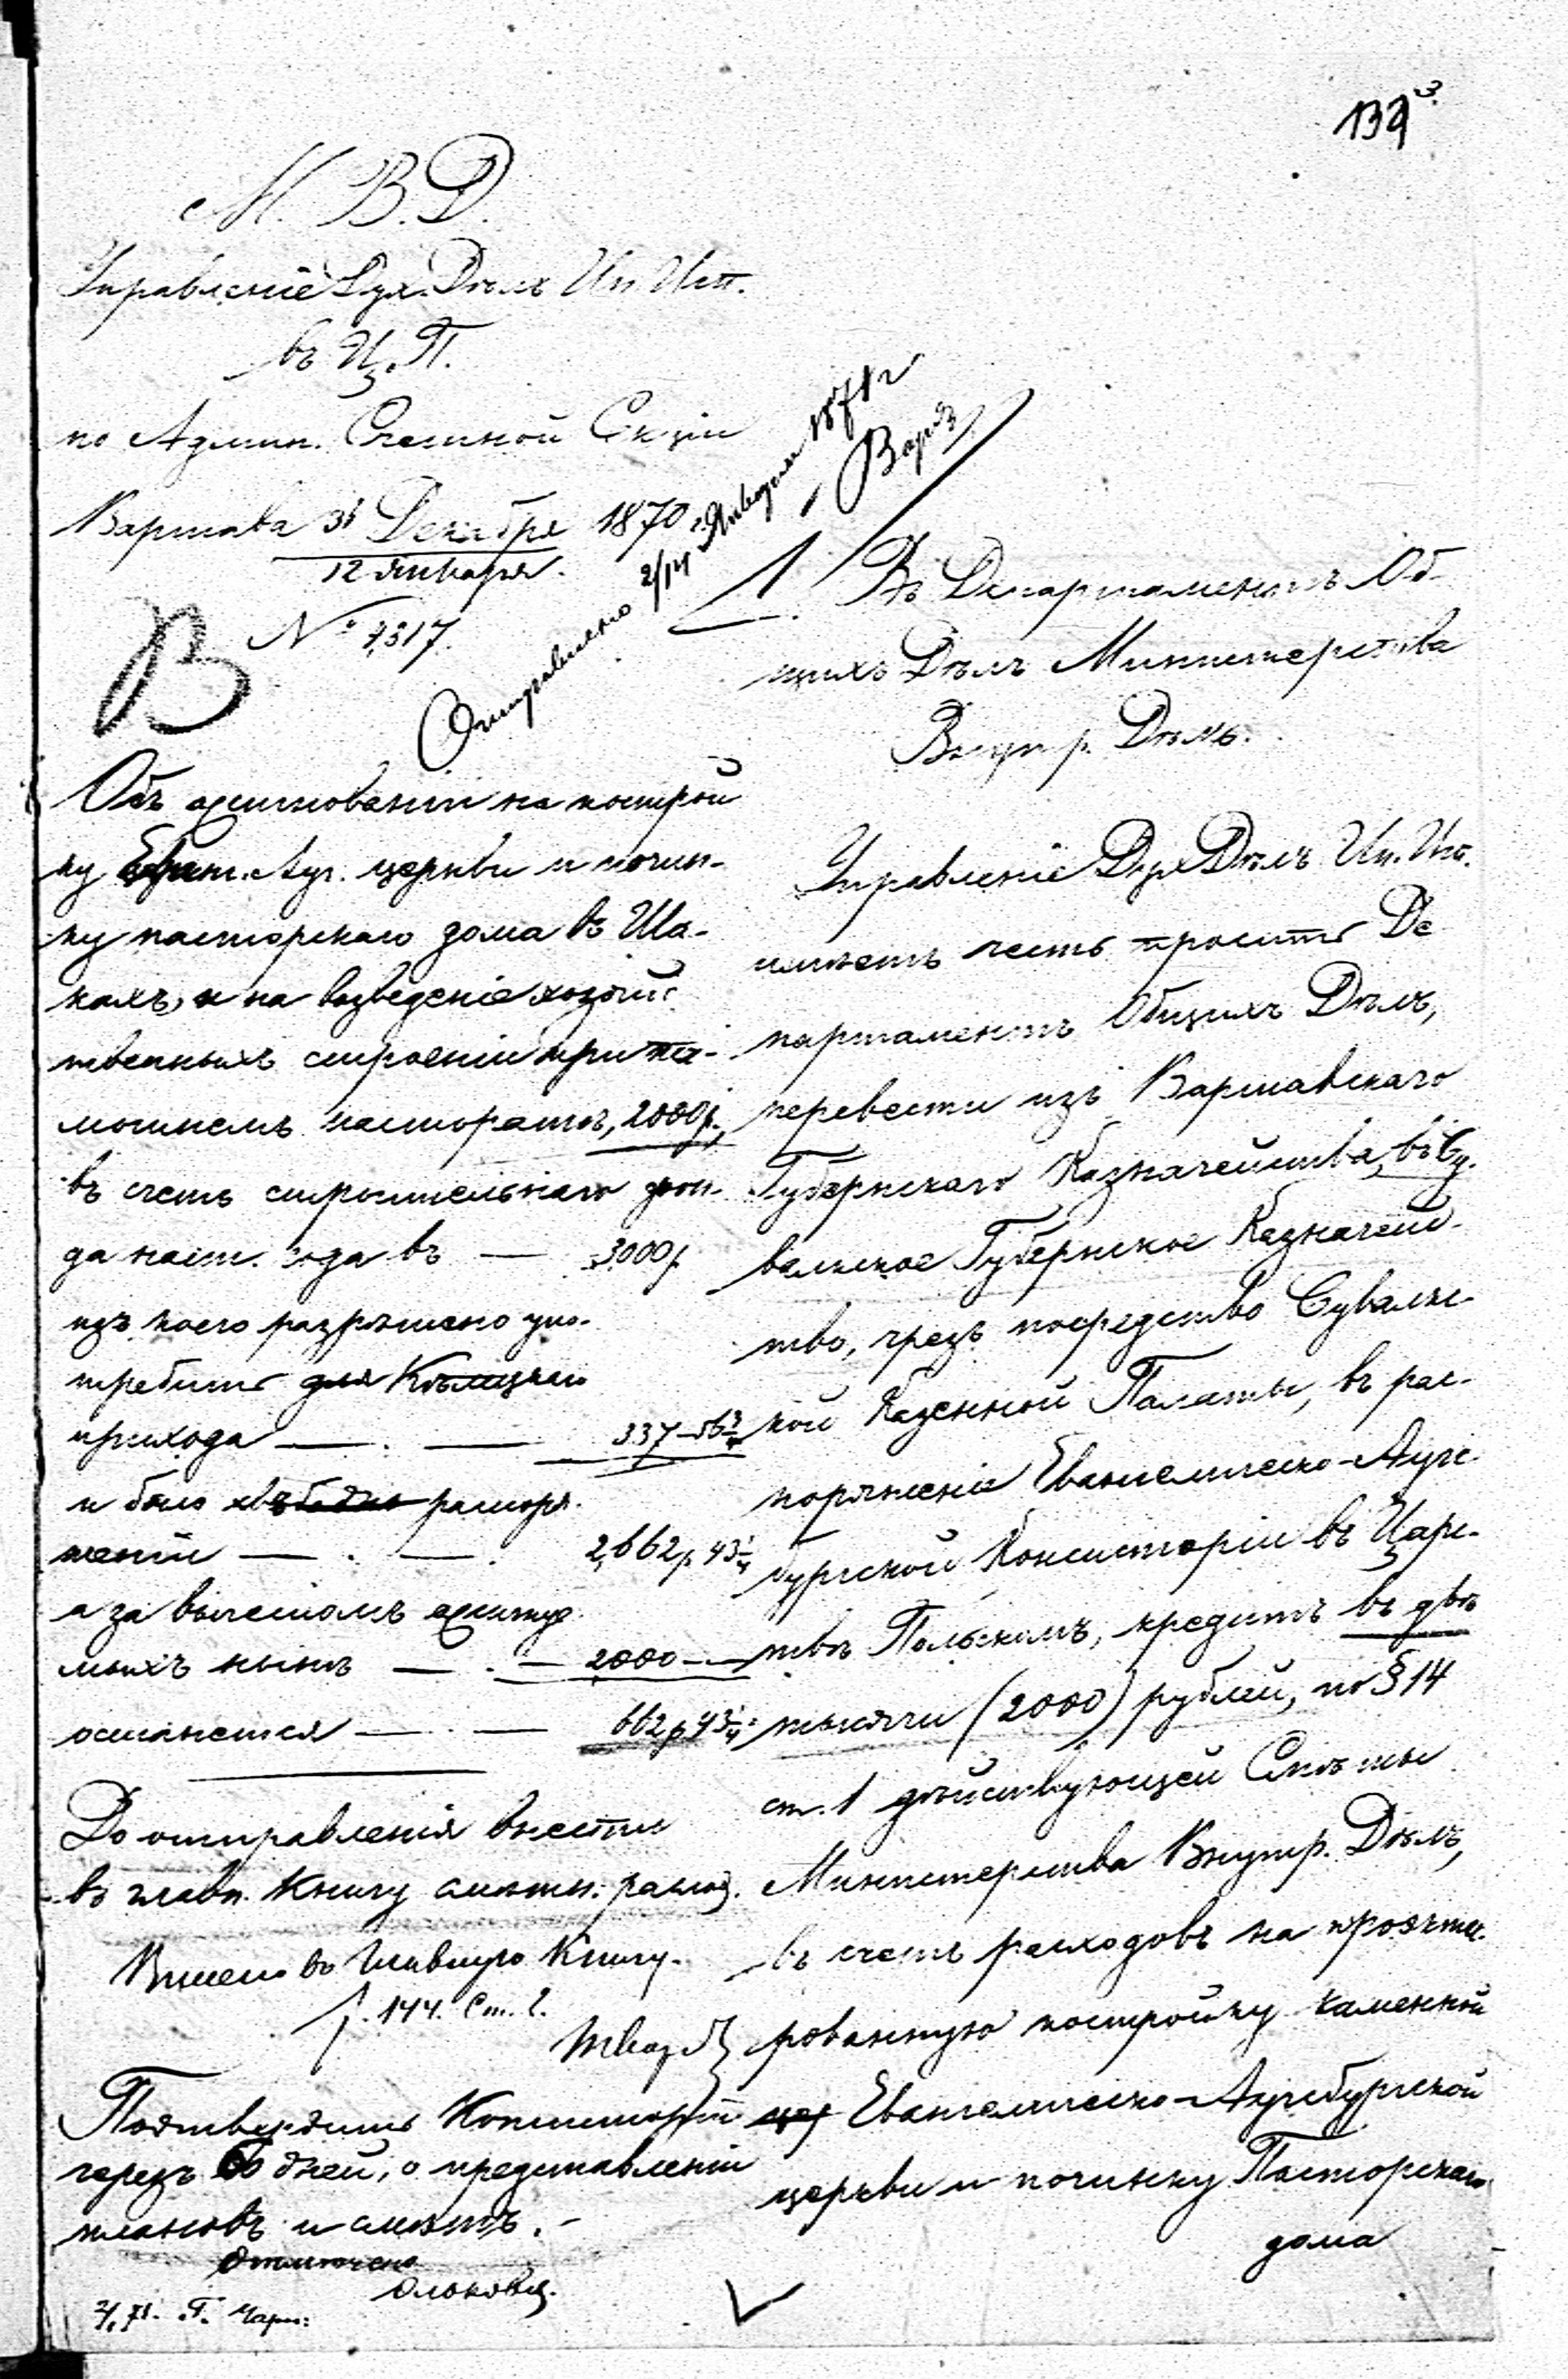 133
М. В. Д.
Управленіе Дух. Дѣлъ Ин. Исп.
въ Ц. П.
по Админ. Счетной Секціи
Варшава 31 Декабря 1870 г.
12 Января.
№ 7,317.
В
Отправлено 2/14 Января 1871 г.
1
Въ Департаментъ Об-
щихъ Дѣлъ Министерства
Внутр. Дѣлъ.
Объ ассигнованіи на построй
ку Еванг. Ауг. церкви и почин-
ку пасторскаго дома въ Ша-
кахъ, и на возведеніе хозяйс
твенныхъ строеній при та-
мошнемъ пасторатѣ, 2000 р.,
въ счетъ строительнаго фон-
да наст. года въ — 3000 р.
изъ коего разрѣшено упо-
требить для Кѣлецкаго
прихода — . — 337-56 3/4
и было въ распоря-
женіи — . — . 2,662 р. 43 1/4
а за вычетомъ ассигнуе-
мыхъ нынѣ — . — 2000 — . —
останется — . — 662 р. 43 1/4
До отправленія внести
въ главн. Книгу смѣтн. расход.
Внесено въ Главную Книгу.
f. 144. Ст. 2.
Подтвердить Консисторіи
черезъ 60 дней, о представленіи
плановъ и смѣтъ. -
Отмѣчено
Управленіе Дух. Дѣлъ Ин. Исп.
имѣетъ честь просить Де
партаментъ Общихъ Дѣлъ,
перевести изъ Варшавскаго
Губернскаго Казначейства, въ Су-
валкское Губернское Казначейс-
тво, чрезъ посредство Сувалкс-
кой Казенной Палаты, въ рас-
поряженіе Евангелическо-Аугс-
бургской Консисторіи въ Царс-
твѣ Польскомъ, кредитъ въ двѣ
тысячи (2000) рублей, по § 14
ст. 1 дѣйствующей Смѣты
Министерства Внутр. Дѣлъ,
въ счетъ расходовъ на проэкти-
рованную постройку каменной
Евангелическо-Аугсбургской
церкви и починку Пасторскаго
дома